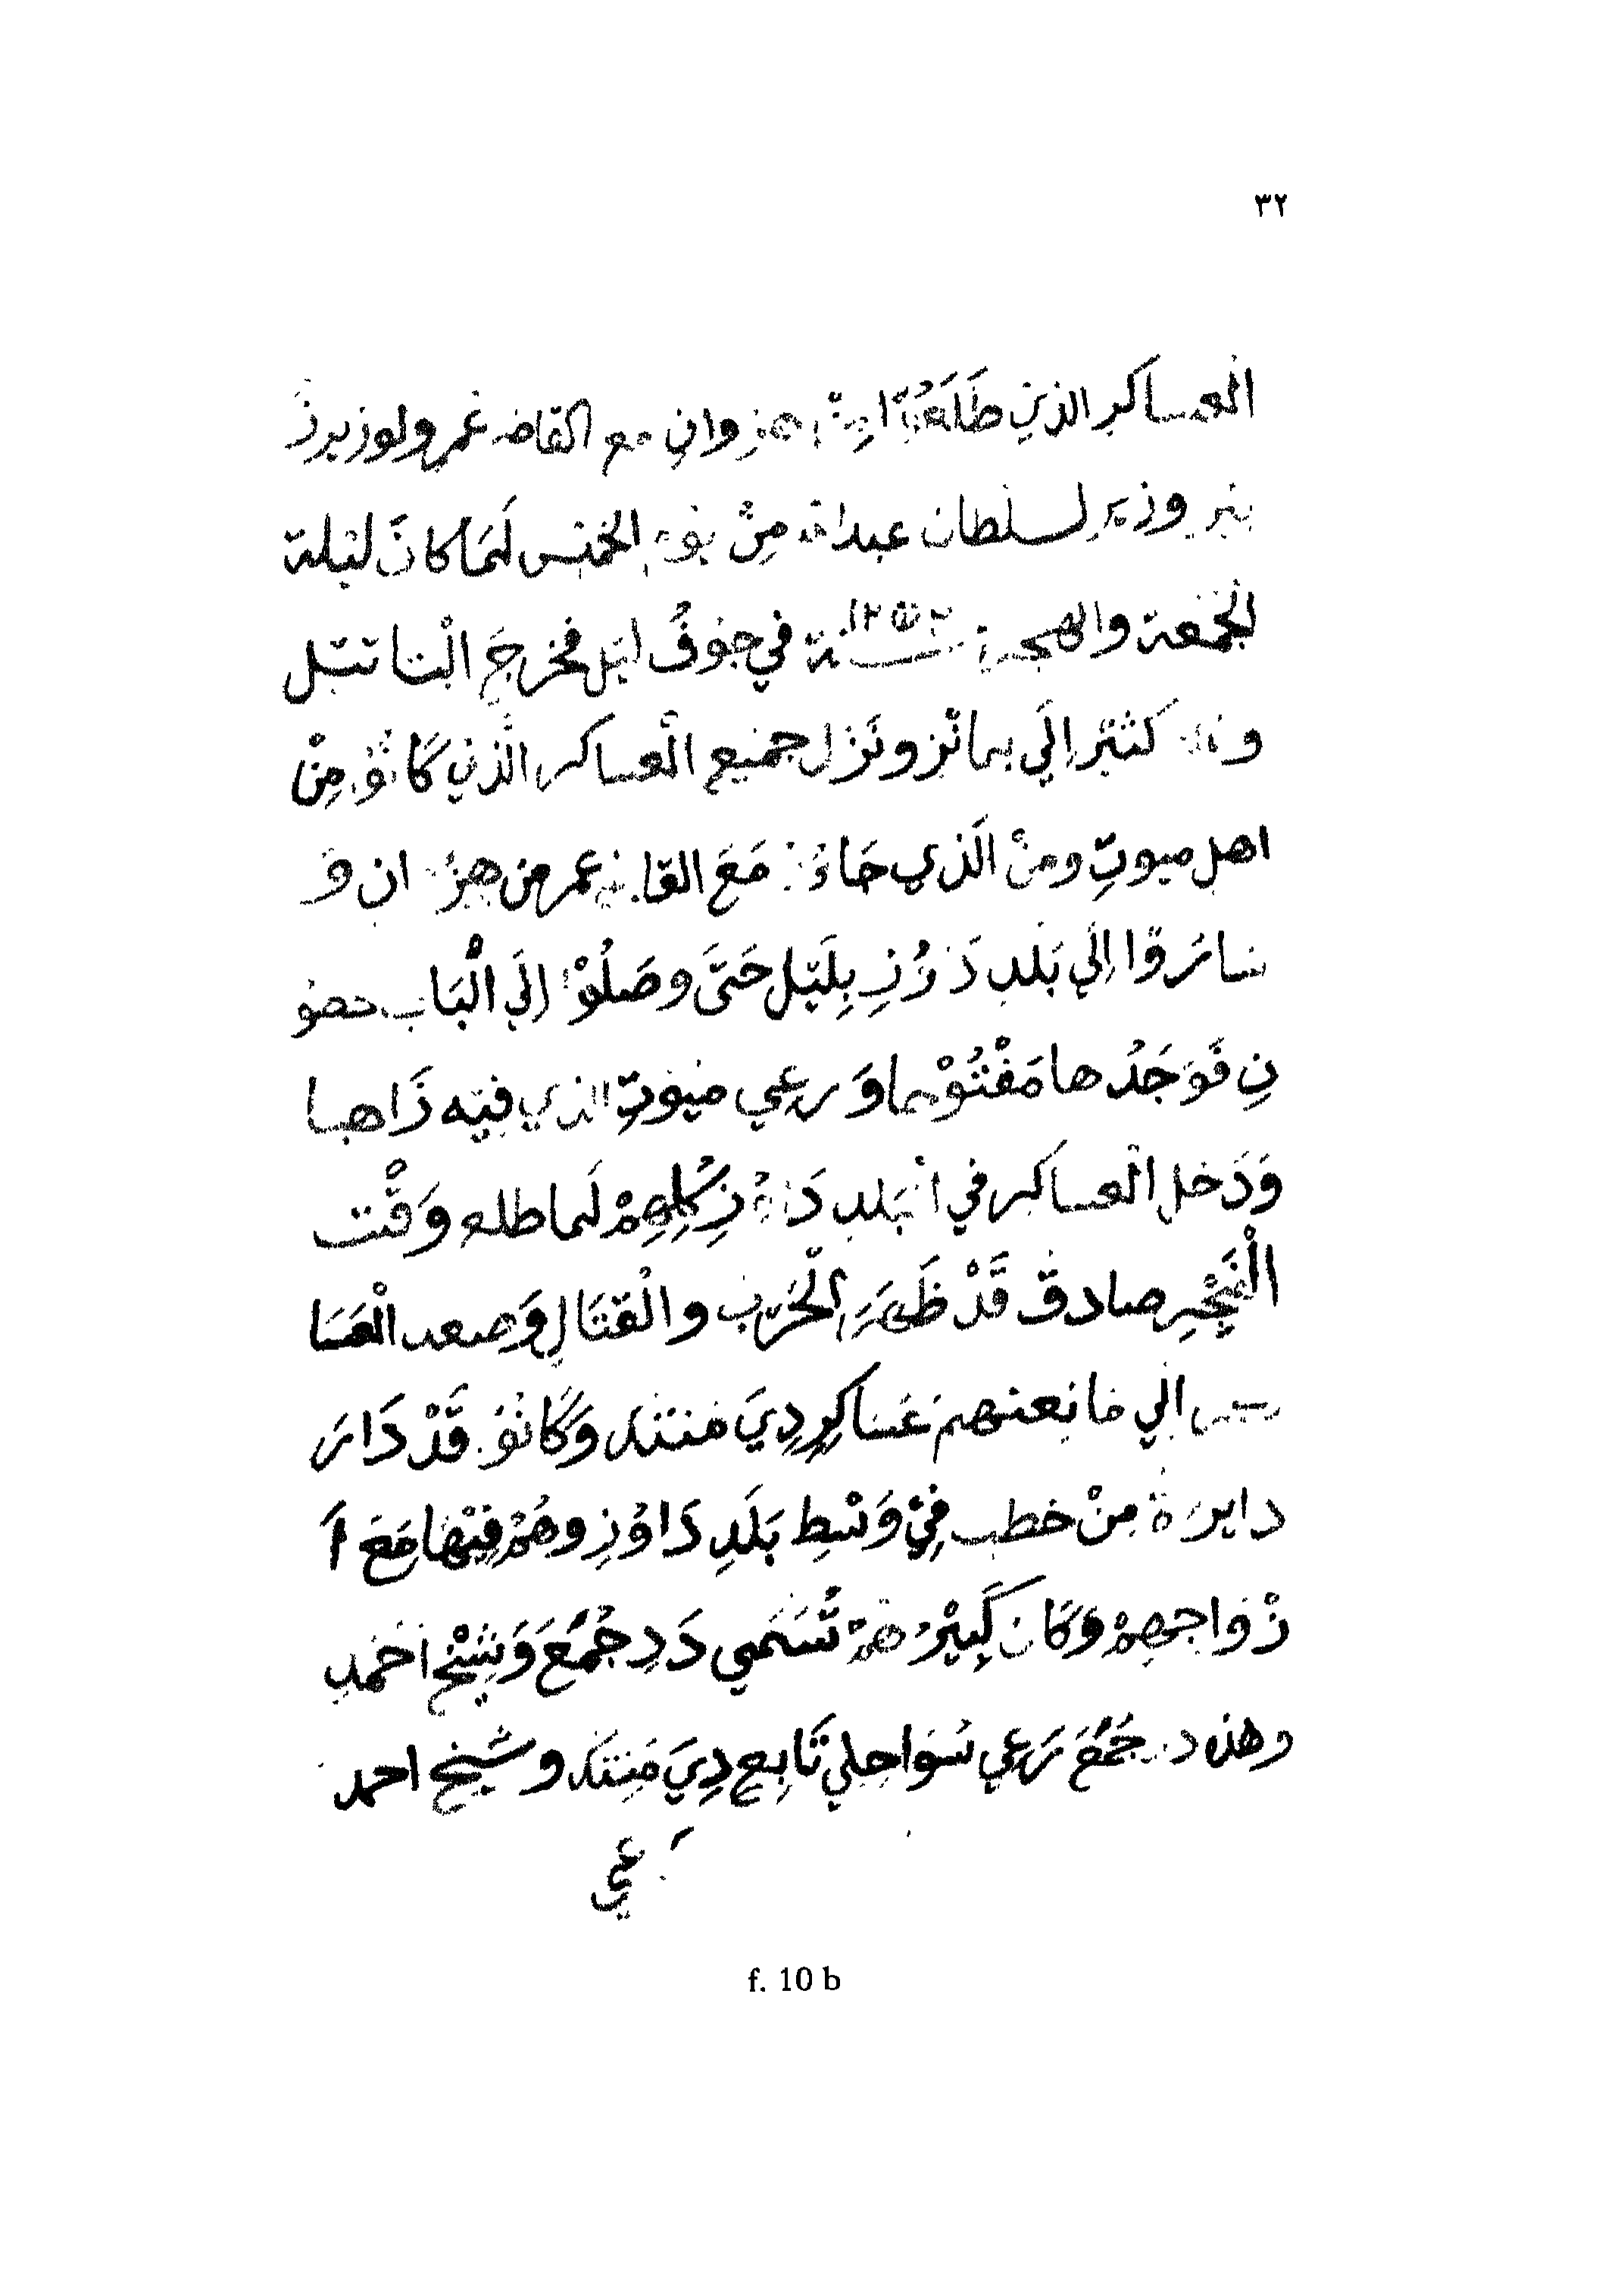 ٣٢
الْعساكر الذين طَلَعُوا مِنْ هنزوان مع القاضه عُمر ولوزيرز
بير وزير لسلطان عبدالله مِنْ يَوْم الخَمِيس لَمَا كانَ ليلة
الجُمعة والهجرة سنة ١٢٥٢ في جَوْفُ ليَل فخرجَ الْبتا تتبل
كَثِيْر إلَي بمائْز ونَزَل جميع الْعساكر الَّذِي كَانُوْ مِنْ
اهل ميوتِ ومنْ الَّذي جَاءُ مَعَ القاضِ عمر من هنزوان وَ
سَارَوا اِلَي بَلَد دَوُزِ بِلَيَل حَتَّى وصَلُوْا اِلَي الْبَاب حصو
نِ فَوَجَدُها مَفْتُوْحا وَرعي ميوتِ الذي فيه ذَاهبا
وَدَخل الْعساكر في الْبَلد دَاوُزِ كُلِهِمْ لَما طلع وَقْت
الْفَجْرِ صادق قَدْ ظَهَرَ الْحَرْب والْقتَالِ وَصعد الْعَسَا
الي مانعنهم عَسَاكِرِ دِيَ مَنتَكَ وَكَانُوْ قَدْ دَارَ
دايرَة مِنْ خطب فِيْ وَسْطِ بَلَدِ دَاوُزِ وهُمْ فِيْهَا مَعَ اَ
زْوَاجهِمْ وَكَان كَبِيْرُهُمْ تُسَمي دَدِ جُمُعَ وَشِيْخ احْمَد
وهذه دد جُمُعَ رَعِي سَوَاحِلي تَابِع دِيَ مَنِتَكَ وشيخ احمد
رَعي
f. 10 b